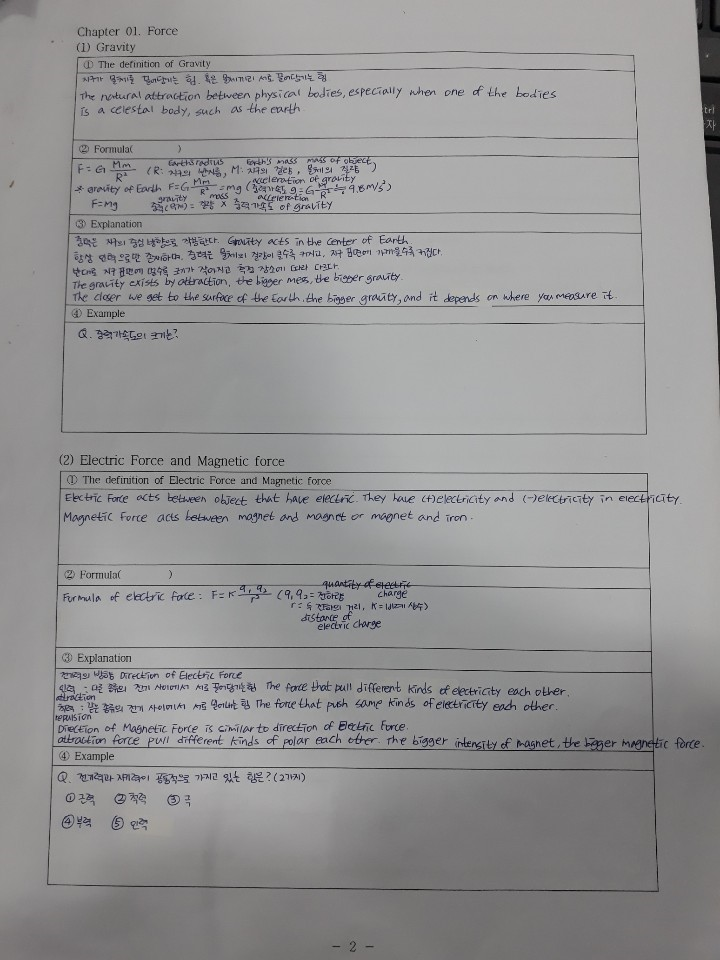 Chapter 01. Force
(1) Gravity
① The definition of Gravity
지구가 물체를 끌어당기는 힘. 혹은 물체끼리 서로 끌어당기는 힘
The natural attraction between physical bodies, especially when one of the bodies
is a celestal body, such as the earth
② Formula( )
Earth's radius Earth's mass mass of object
F = G Mm/R² (R: 지구의 반지름, M: 지구의 질량, 물체의 질량)
acceleration of gravity
* gravity of Earth F=G Mm/R² = mg (중력가속도 g = G M/R² ≒ 9.8m/s²)
gravity mass acceleration
F=mg 중력(무게) = 질량 × 중력가속도 of gravity
③ Explanation
중력은 지구의 중심 방향으로 작용한다. Gravity acts in the center of Earth.
항상 인력으로만 존재하며, 중력은 물체의 질량이 클수록 커지고, 지구 표면에 가까울수록 커진다.
반대로 지구 표면에 멀수록 크기가 작아지고 측정 장소에 따라 다르다.
The gravity exists by attraction, the bigger mess, the bigger gravity.
The closer we get to the surface of the Earth, the bigger gravity, and it depends on where you measure it.
④ Example
Q. 중력가속도의 크기는?
(2) Electric Force and Magnetic force
① The definition of Electric Force and Magnetic force
Electric Force acts between object that have electric. They have (+)electricity and (-)electricity in electricity.
Magnetic Force acts between magnet and magnet or magnet and iron.
② Formula( )
quantity of electric
Formula of electric force : F=K q₁q₂/r² (q₁q₂= 전하량 charge
r = 두 전하의 거리, K=비례 상수)
distance of
electric charge
③ Explanation
전기력의 방향 Direction of Electric Force
인력 : 다른 종류의 전기 사이에서 서로 끌어당기는 힘 The force that pull different kinds of electricity each other.
attraction
척력 : 같은 종류의 전기 사이에서 서로 밀어내는 힘 The force that push same kinds of electricity each other.
repulsion
Direction of Magnetic Force is similar to direction of Electric Force.
attraction force pull different kinds of polar each other. The bigger intensity of magnet, the bigger magnetic force.
④ Example
Q. 전기력과 자기력이 공통적으로 가지고 있는 힘은? (2가지)
① 근력 ② 척력 ③ 극
④ 부력 ⑤ 인력
- 2 -